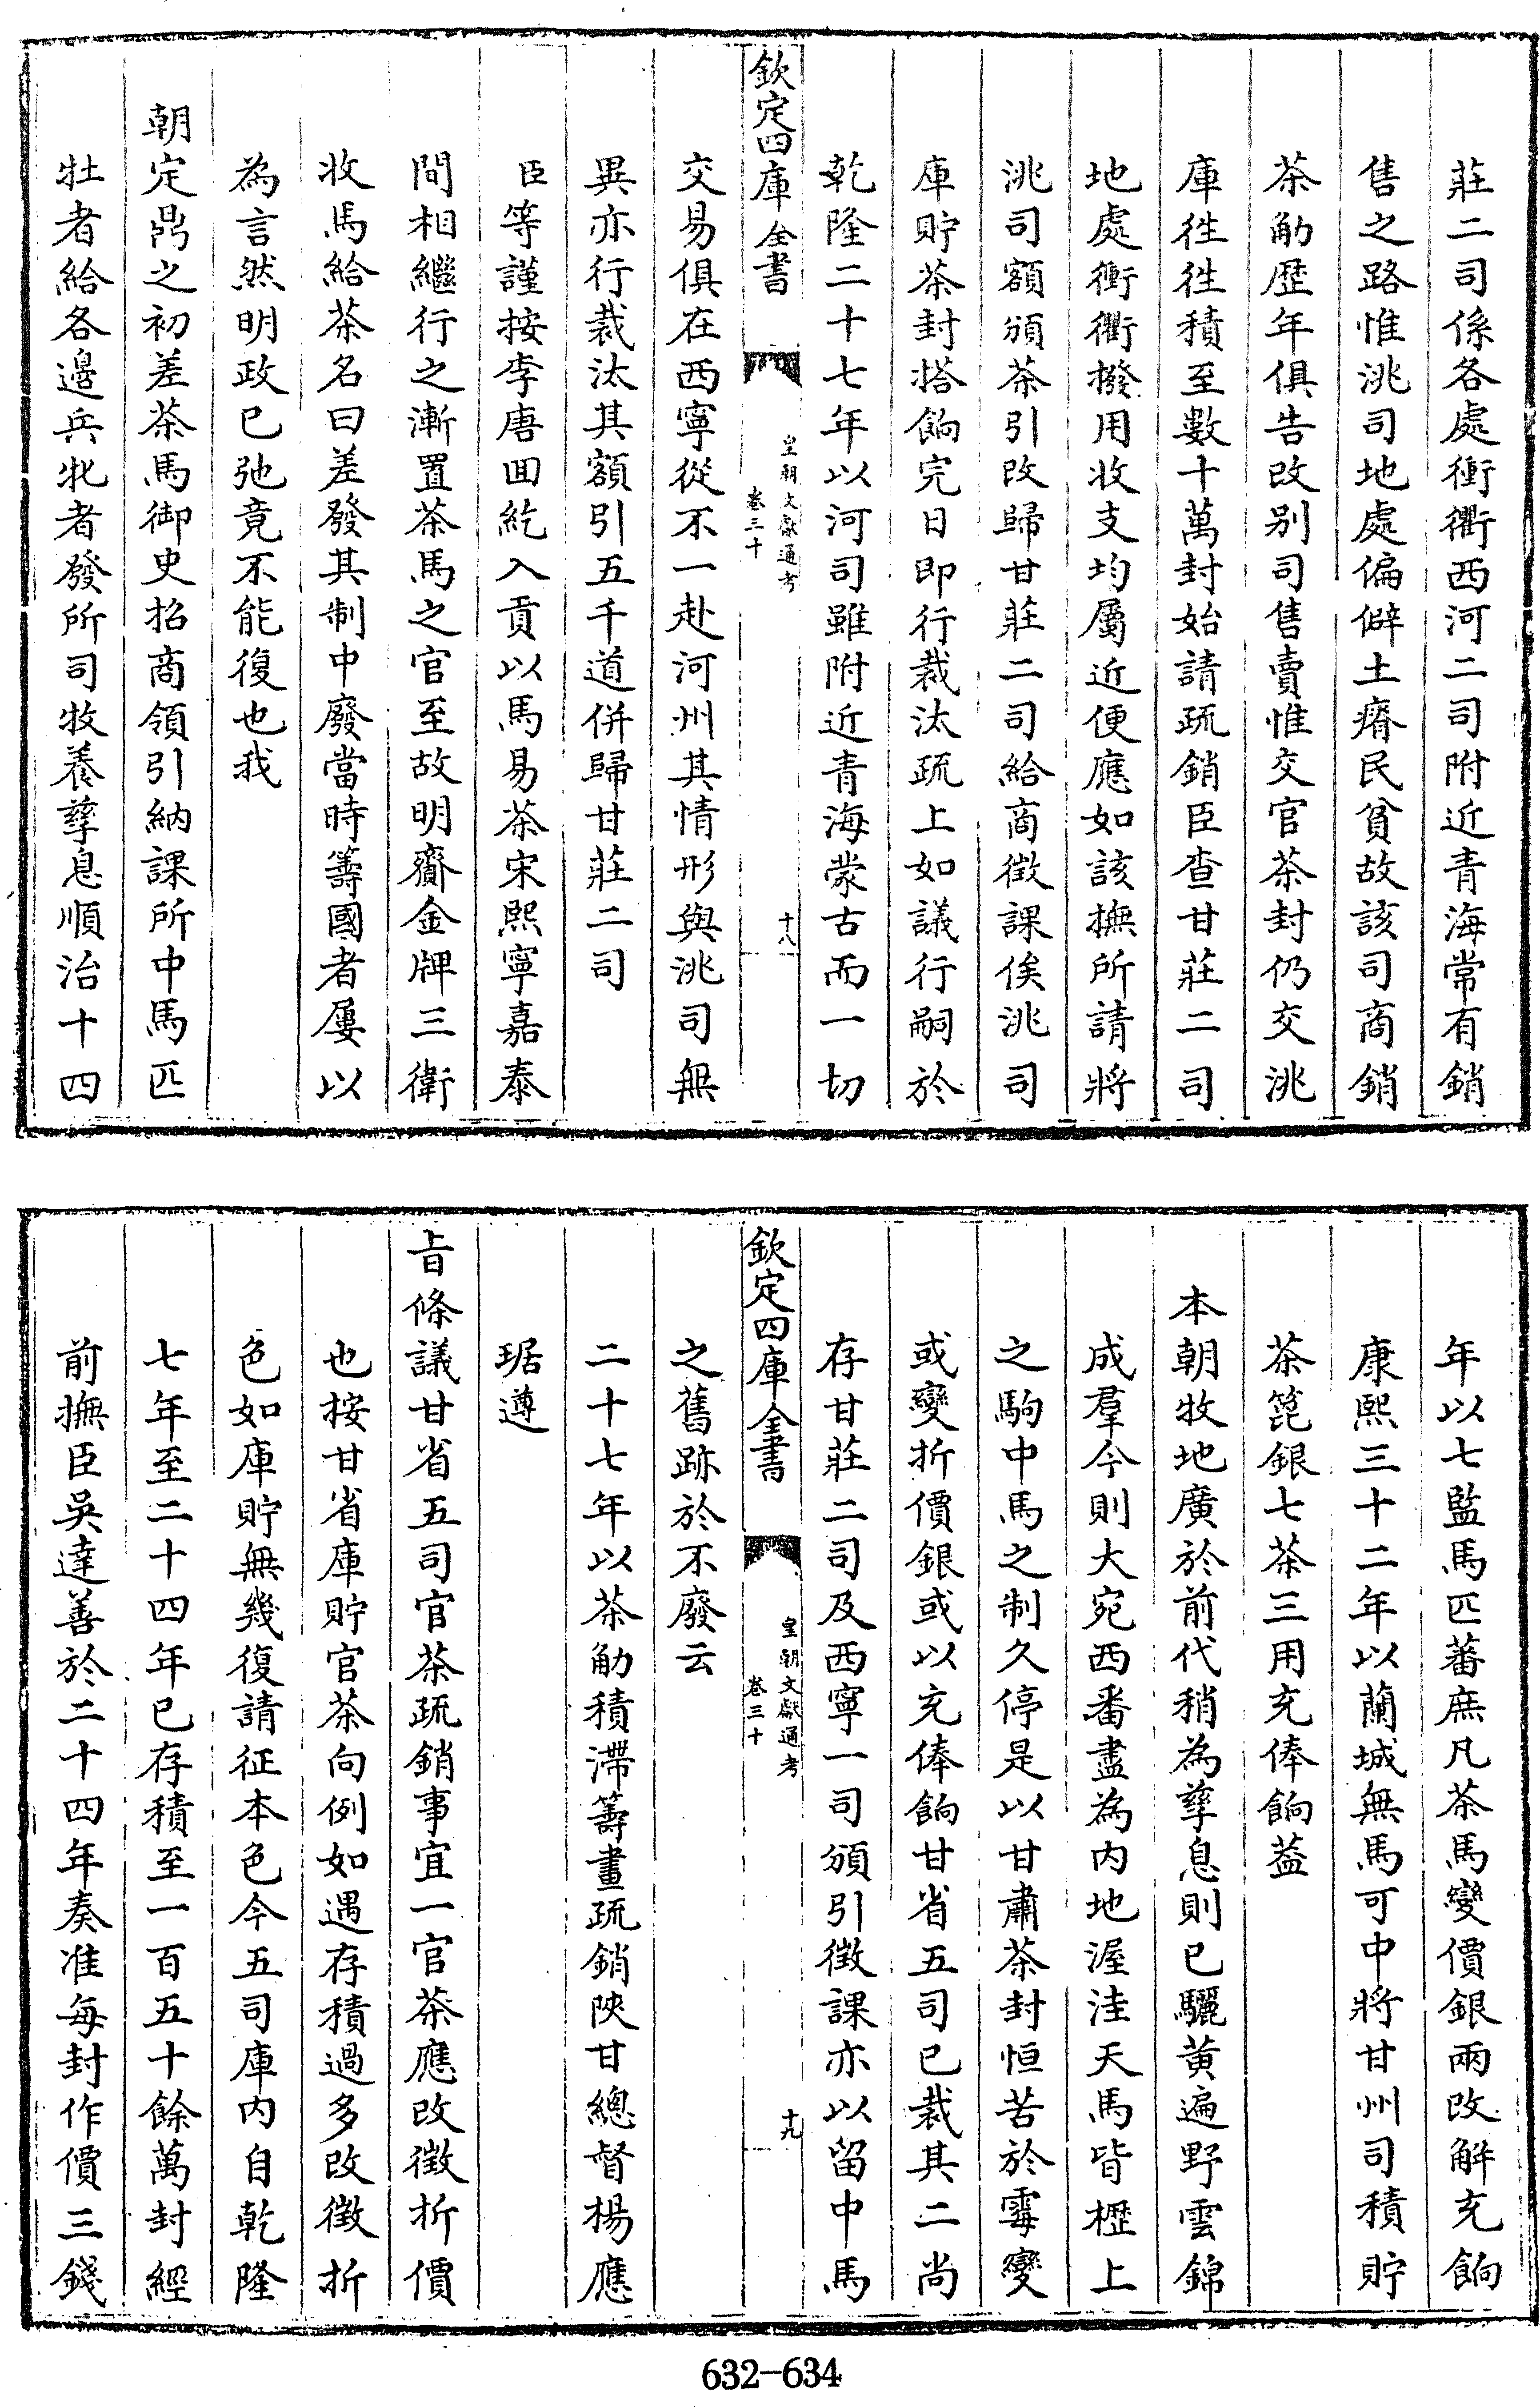 莊二司係各處衝衢西河二司附近青海常有銷
售之路惟洮司地處偏僻土瘠民貧故該司商銷
茶觔歴年俱告改别司售賣惟交官茶封仍交洮
庫徃徃積至數十萬封始請疏銷臣查甘莊二司
地處衝衢撥用收支均屬近便應如該撫所請將
洮司額頒茶引改歸甘莊二司給商徴課俟洮司
庫貯茶封搭餉完日即行裁汰疏上如議行嗣於
乾隆二十七年以河司雖附近青海蒙古而一切
欽定四庫全書
皇朝文獻通考
卷三十
十八
交易俱在西寧從不一赴河州其情形與洮司無
異亦行裁汰其額引五千道併歸甘莊二司
臣等謹按李唐囬紇入貢以馬易茶宋熙寧嘉泰
間相繼行之漸置茶馬之官至故明齎金牌三衛
收馬給茶名曰差發其制中廢當時籌國者屢以
為言然明政已弛竟不能復也我
朝定鼎之初差茶馬御史招商領引納課所中馬匹
牡者給各邊兵牝者發所司牧養孳息順治十四
年以七監馬匹蕃庶凡茶馬變價銀兩改解充餉
康熙三十二年以蘭城無馬可中將甘州司積貯
茶篦銀七茶三用充俸餉葢
本朝牧地廣於前代稍為孳息則已驪黄遍野雲錦
成羣今則大宛西番盡為内地渥洼天馬皆櫪上
之駒中馬之制久停是以甘肅茶封恒苦於霉變
或變折價銀或以充俸餉甘省五司已裁其二尚
存甘莊二司及西寧一司頒引徴課亦以留中馬
欽定四庫全書
皇朝文獻通考
卷三十
十九
之舊跡於不廢云
二十七年以茶觔積滯籌畫疏銷陜甘總督楊應
琚遵
㫖條議甘省五司官茶疏銷事宜一官茶應改徴折價
也按甘省庫貯官茶向例如遇存積過多改徴折
色如庫貯無幾復請征本色今五司庫内自乾隆
七年至二十四年已存積至一百五十餘萬封經
前撫臣吳達善於二十四年奏准每封作價三錢
632-634